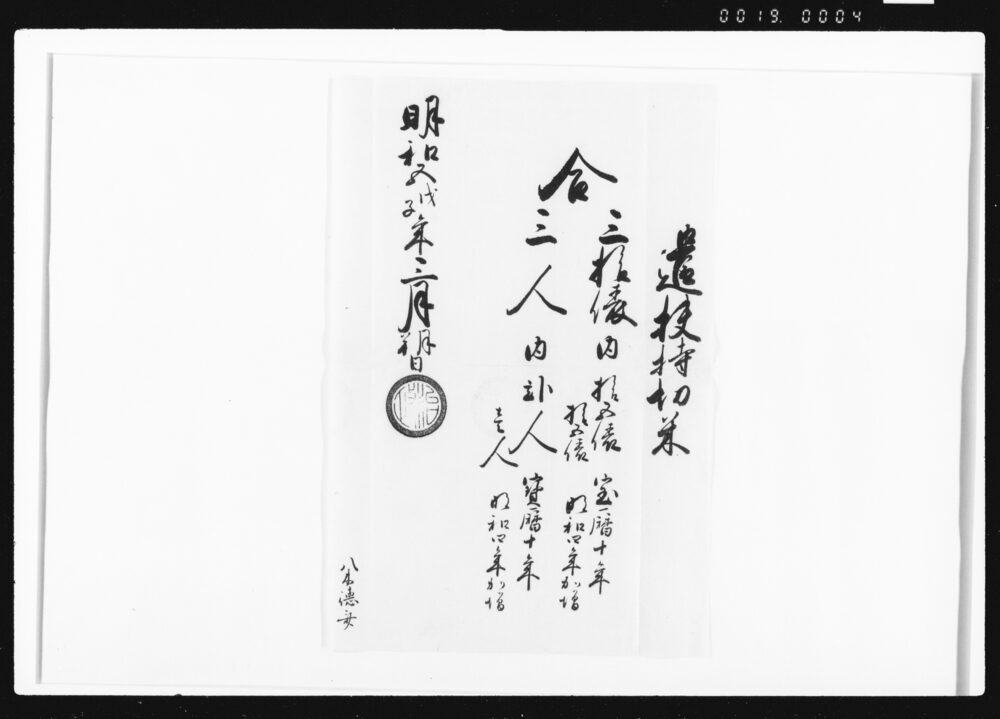 0019. 0004
遣扶持切米
合三拾俵内拾五俵宝暦十年
拾五俵明和四年加増
三人内弐人寶暦十年
壱人明和四年加増
明和五戊子年三月朔日
八木德